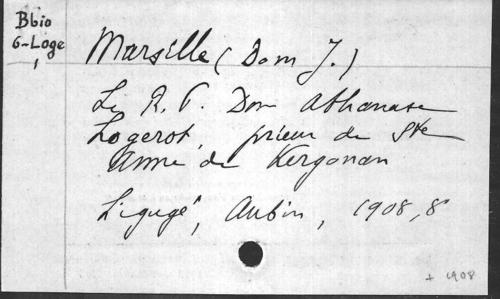 Bbio
6-Loge
1
Marsille (Dom J.)
Le R. P. Dom Athanase
Logerot, prieur de Ste
Anne de Kergonan
Ligugé, Aubin, 1908, 8°
+ 1908